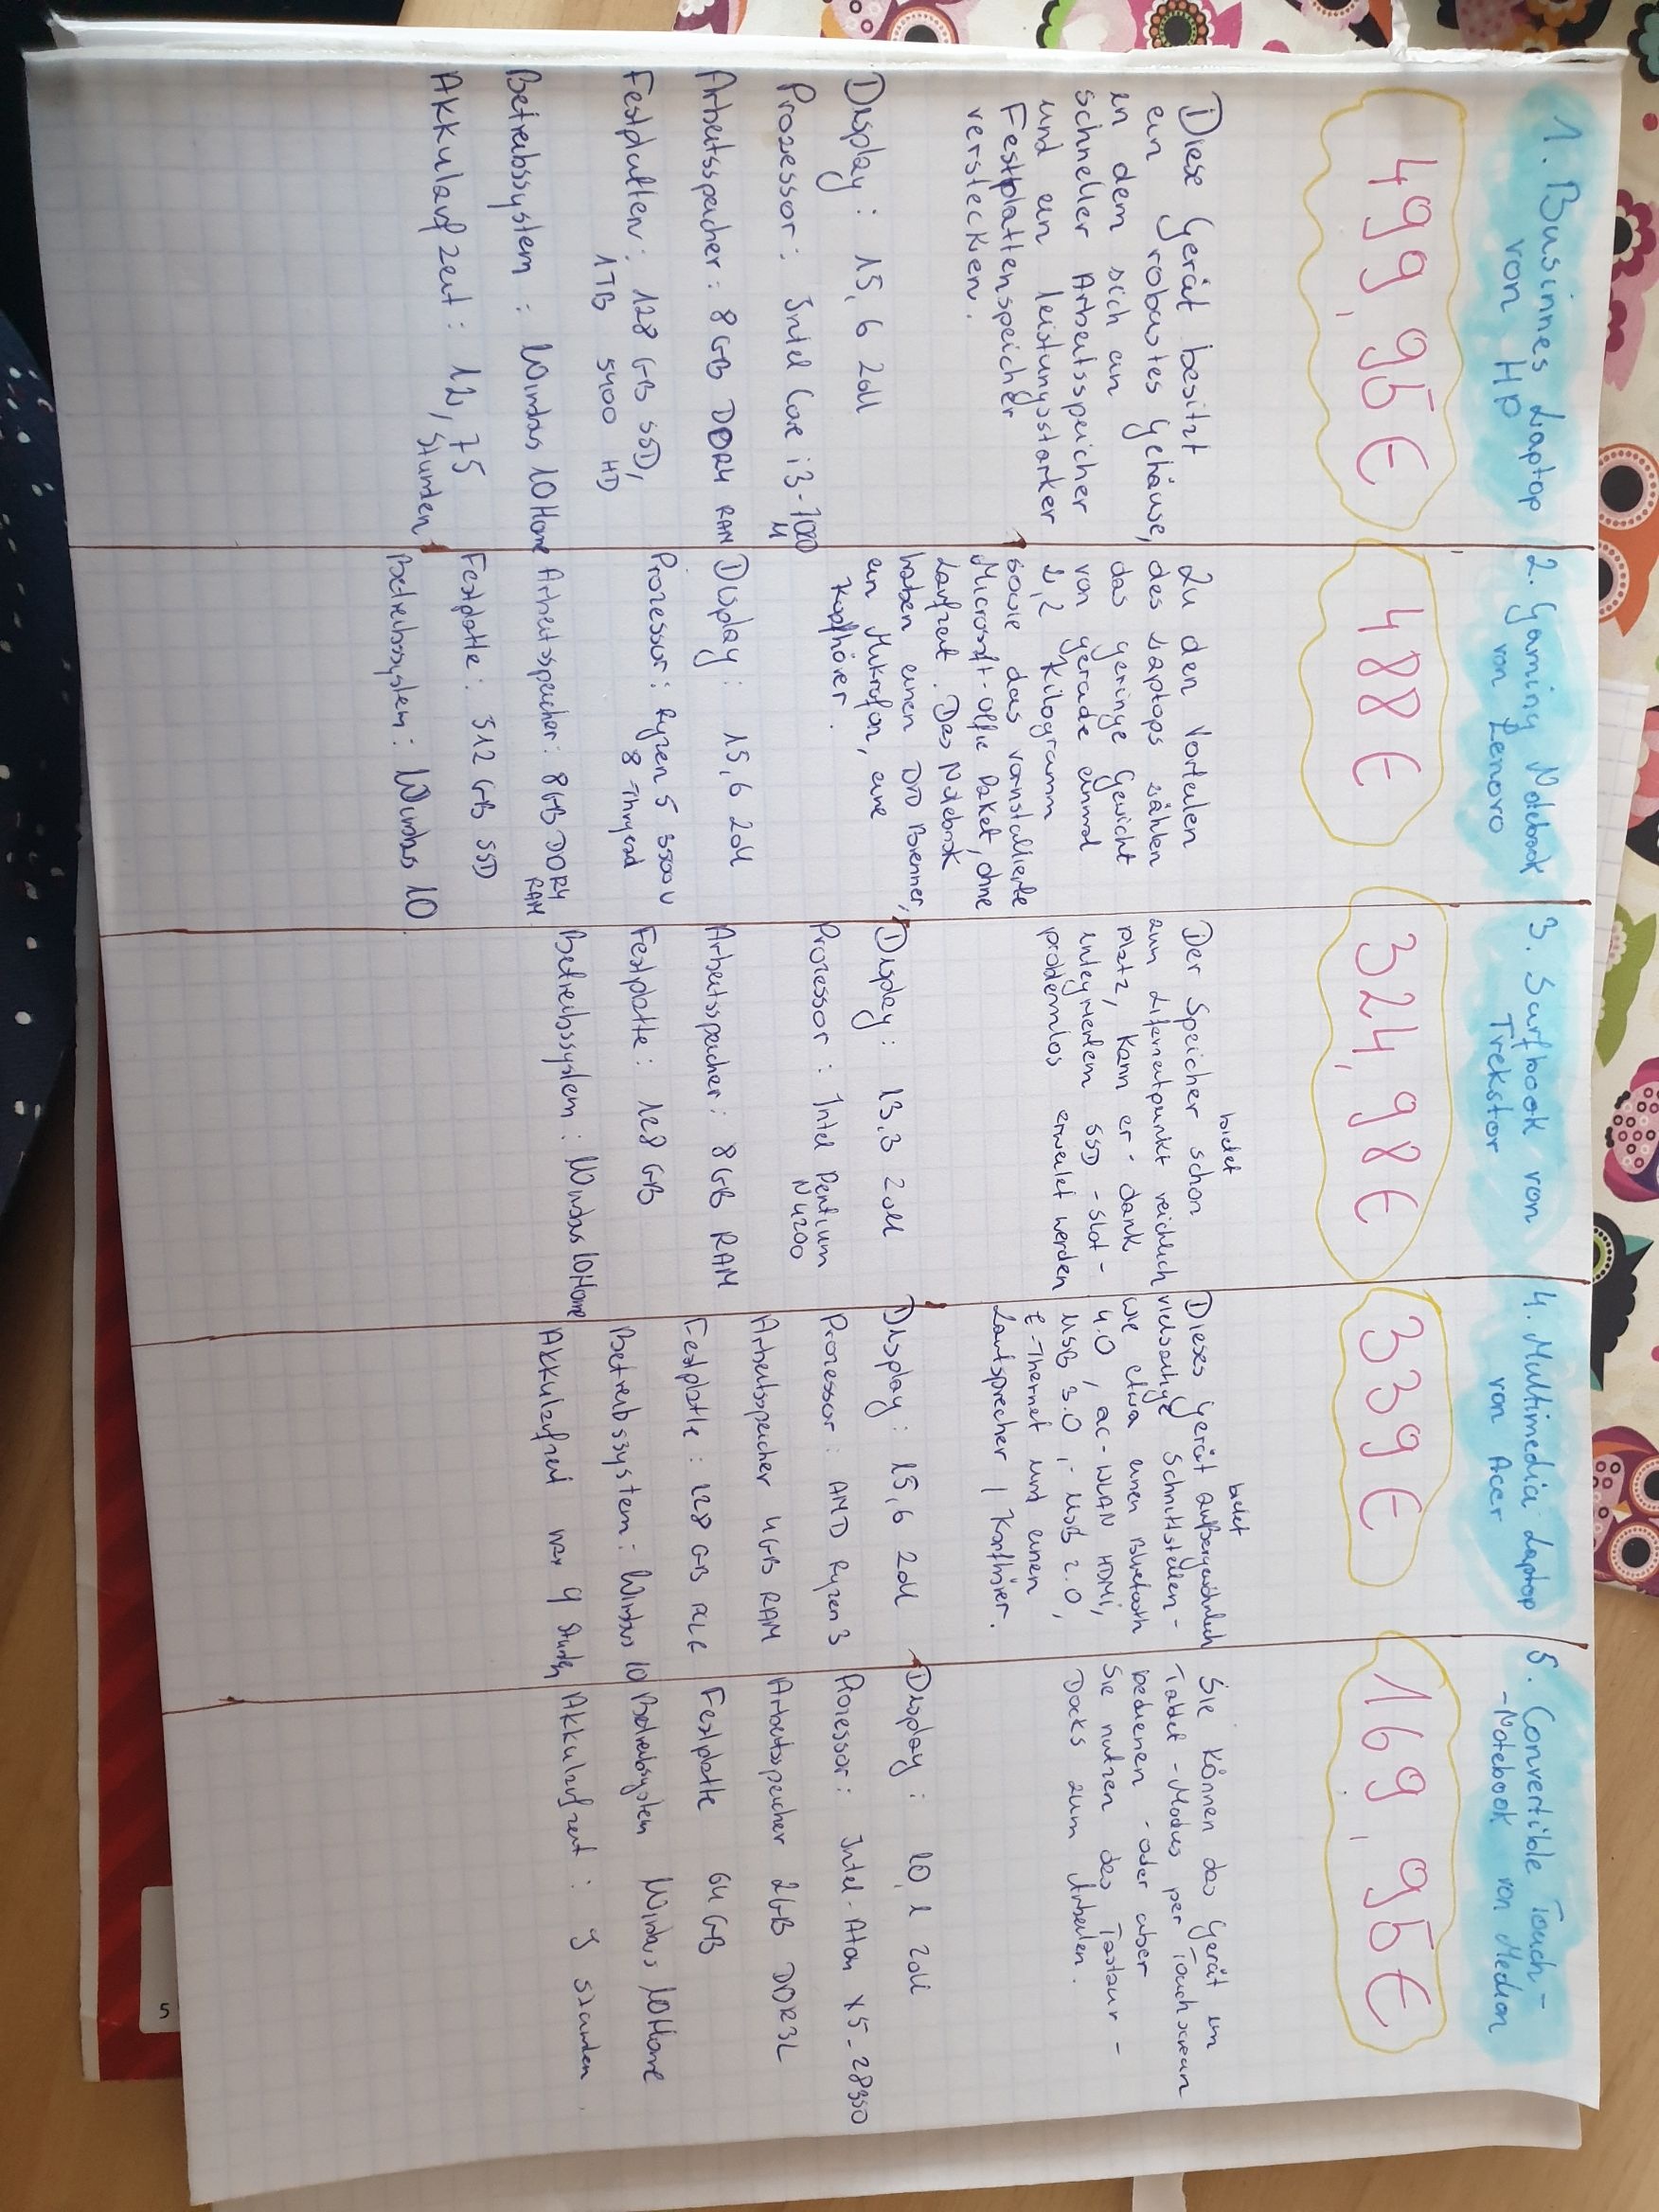 1. Businnes Laptop
von Hp
499,95€
Diese Gerät besitzt
ein robustes Gehäuse,
in dem sich ein
schneller Arbeitsspeicher
und ein leistungsstarker
Festplattenspeicher
verstecken.
Display: 15,6 Zoll
Prozessor: Intel Core i3-7020
U
Arbeitsspeicher: 8 GB DDR4 RAM
Festplatten: 128 GB SSD,
1TB 5400 HD
Betreibssystem: Windows 10 Home
Akkulaufzeit: 12,75
Stunden
2. Gaming Notebook
von Lenovo
488€
Zu den Vorteilen
des Laptops zählen
das geringe Gewicht
von gerade einmal
2,2 Kilogramm
sowie das vorinstallierte
Microsoft-offic Paket, ohne
Laufzeit. Das Notebook
haben einen DVD Brenner,
ein Mikrofon, eine
Kopfhörer.
Display: 15,6 Zoll
Prozessor: Ryzen 5 3500U
8
Arbeitsspeicher: 8GB DDR4
RAM
Festplatte: 512 GB SSD
Betreibssystem: Windows 10
3. Surfbook von
Trekstor
324,98€
bietet
Der Speicher schon
zum Liferzeitpunkt reichlich
platz, kann er - dank
integriertem SSD-Slot-
problemlos erweitet werden
Display: 13,3 Zoll
Prozessor: Intel Pentium
N4200
Arbeitsspeicher: 8GB RAM
Festplatte: 128 GB
Betreibssystem: Windows 10 Home
4. Multimedia Laptop
von Acer
339€
bietet
Dieses Gerät außergewöhnlich
vielsaitige Schnittstellen-
wie etwa einen Bluetooth
4.0, ac-WLAN HDMI,
USB 3.0,- USB 2.0,
E-Thernet und einen
Lautsprecher /
Display: 15,6 Zoll
Prozessor: AMD Ryzen 3
Arbeitsspeicher 4GB RAM
Festplatte: 128 GB
Betreibssystem: Windows 10
Akkulaufzeit max 9 Stunden
5. Convertible Touch-
-Notebook von Medion
169,95€
Sie können das Gerät im
Tablet-Modus per Touchscreen
bedienen -oder aber
Sie nutzen das Tastaur-
Docks zum Arbeiten.
Display: 10,1 Zoll
Prozessor: Intel-Atom X5-Z8350
Arbeitsspeicher 2GB DDR3L
Festplatte 64 GB
Betreibsystem Windows 10 Home
Akkulaufzeit: 9 Stunden.
5